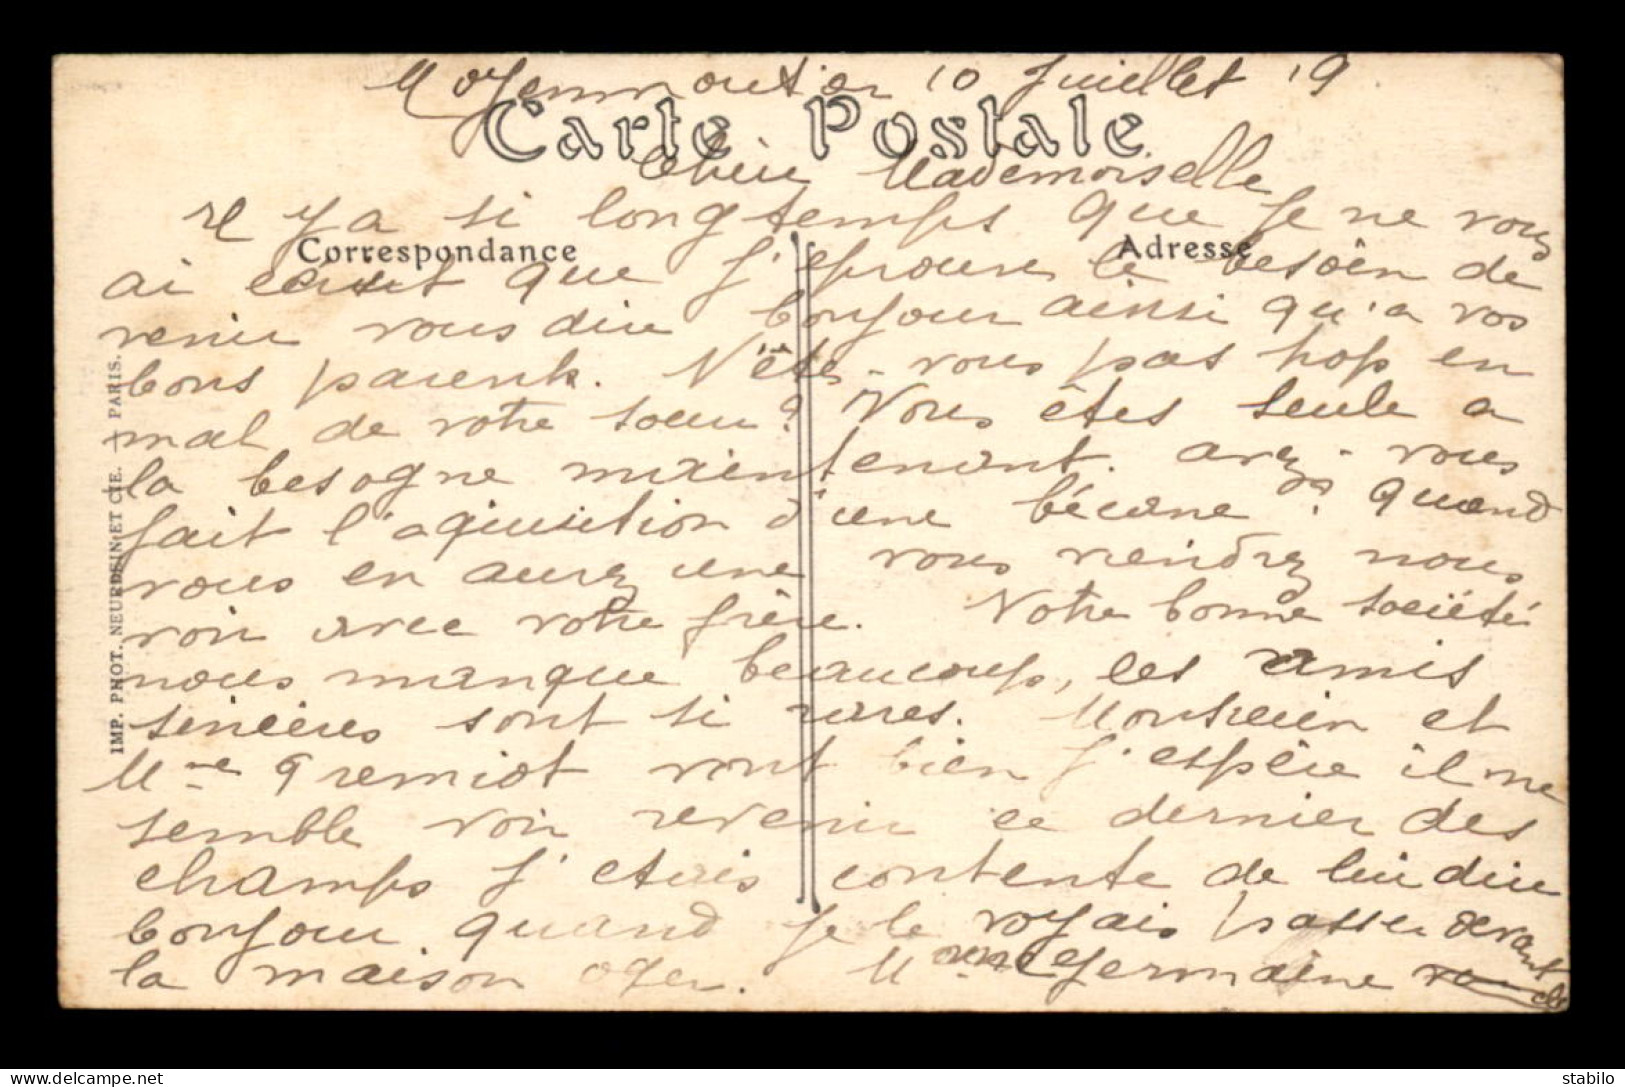 Moyenmoutier 10 Juillet 19
Carte Postale
Chère Mademoiselle
Il y a si longtemps que je ne vous
Correspondance
Adresse
ai écrit que j'éprouve le besoin de
venir vous dire bonjour ainsi qu'a vos
bons parents. N'êtes-vous pas trop en
mal de votre soeur? Vous êtes seule a
la besogne maintenant. avez-vous
fait l'aquisition d'une bécane? quand
vous en aurez une vous viendrez nous
voir avec votre frère. Notre bonne société
nous manque beaucoup, les amis
sincères sont si rares. Monsieur et
Mme Gremiot vont bien j'espère il me
semble voir revenir ce dernier des
champs j'etais contente de lui dire
bonjour quand je le voyais passer devant
la maison oger. Mme Germaine
IMP. PHOT. NEURDEIN ET CIE. — PARIS.
stabilo